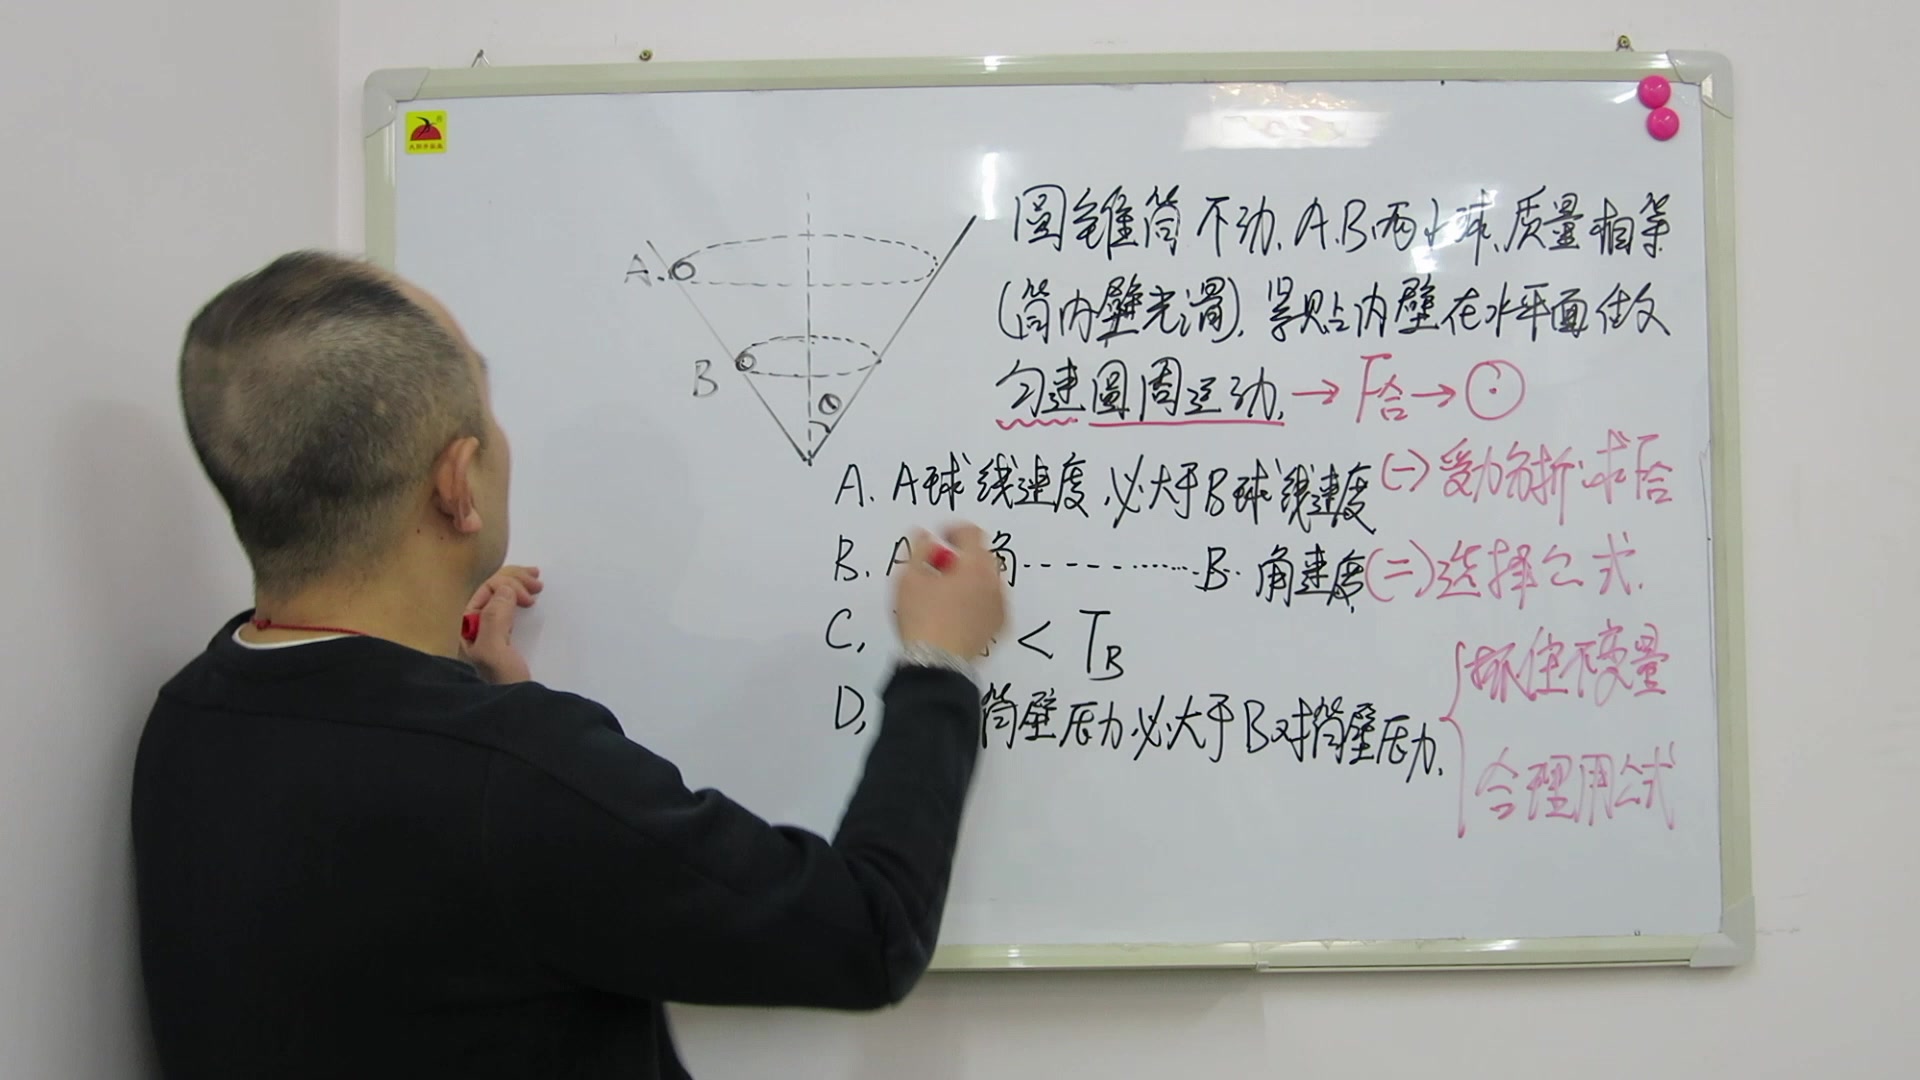 圆锥筒不动,A.B.两小球,质量相等
(筒内壁光滑),紧贴内壁在水平面做
匀速圆周运动,→F合→⊙
A.
B
θ
A. A球线速度必大于B球线速度
(一)受力分析·求F合
B. A 角------·······B 角速度
(二)选择公式.
C, < T_B
D, 筒壁压力必大于B对筒壁压力.
抓住不变量
合理用公式